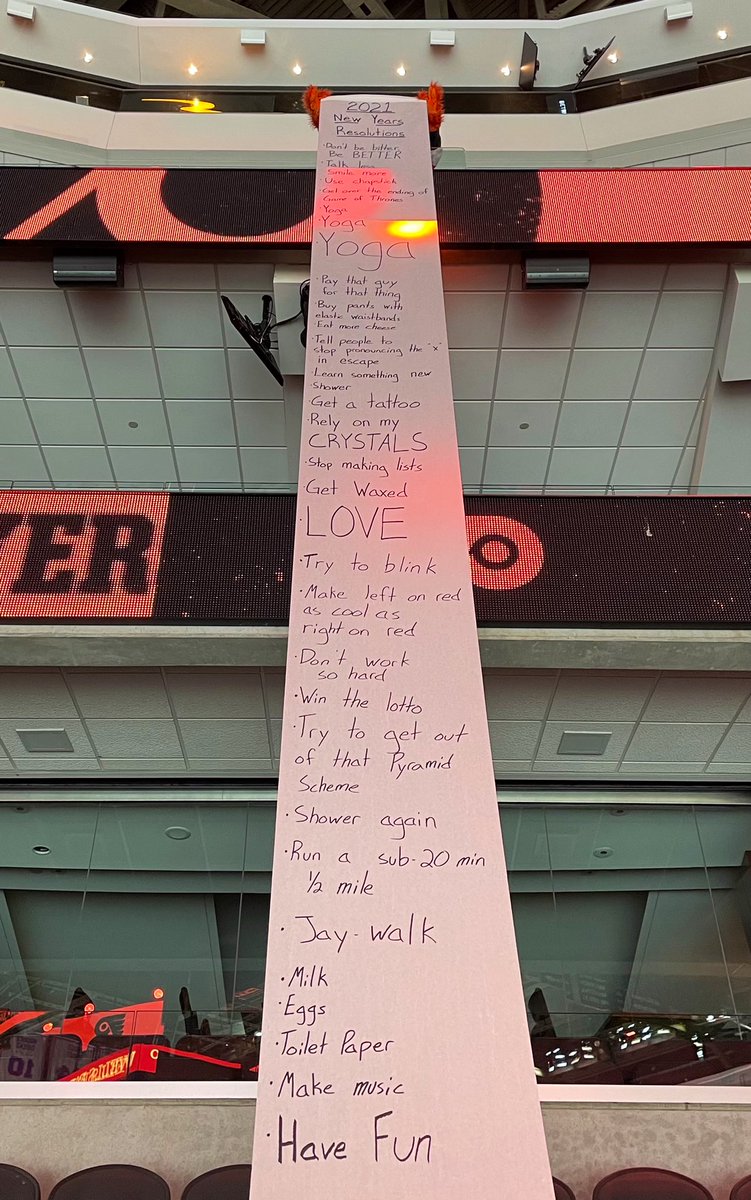 2021
New Years
Resolutions
·Don't be bitter.
Be BETTER
·Talk less
·Smile more
·Use chapstick
·Get over the ending of
Game of Thrones
·Yoga
·Yoga
·Yoga
·Pay that guy
for that thing
·Buy pants with
elastic waistbands
·Eat more cheese
·Tell people to
stop pronouncing the "x"
in escape
·Learn something new
·Shower
·Get a tattoo
·Rely on my
CRYSTALS
·Stop making lists
·Get Waxed
·LOVE
·Try to blink
·Make left on red
as cool as
right on red
·Don't work
so hard
·Win the lotto
·Try to get out
of that Pyramid
Scheme
·Shower again
·Run a sub-20 min
1/2 mile
·Jay-walk
·Milk
·Eggs
·Toilet Paper
·Make music
·Have Fun
YER
10